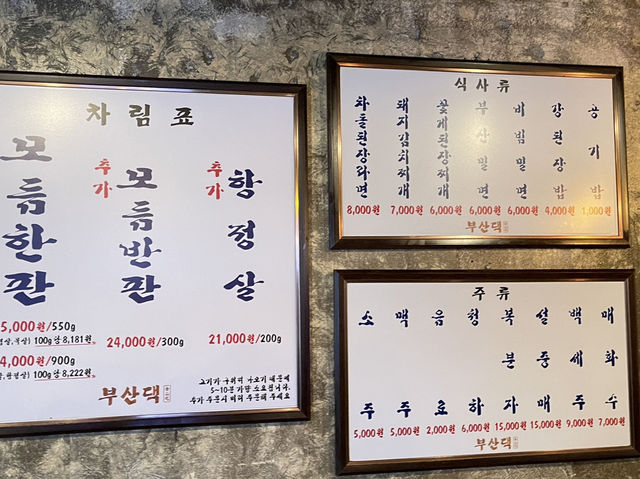 차림표
모듬한판
5,000원/550g
100g당 8,181원
4,000원/900g
100g당 8,222원
추가
모듬반판
24,000원/300g
추가
항정살
21,000원/200g
고기가 구워져 나오기 때문에
5~10분 가량 소요됩니다.
추가 주문시 미리 주문해 주세요
부산댁
식사류
차돌된장라면
8,000원
돼지김치찌개
7,000원
꽃게된장찌개
6,000원
부산밀면
6,000원
비빔밀면
6,000원
강된장밥
4,000원
공기밥
1,000원
부산댁
주류
소주
5,000원
맥주
5,000원
음료
2,000원
청하
6,000원
복분자
15,000원
설중매
15,000원
백세주
9,000원
매화수
7,000원
부산댁